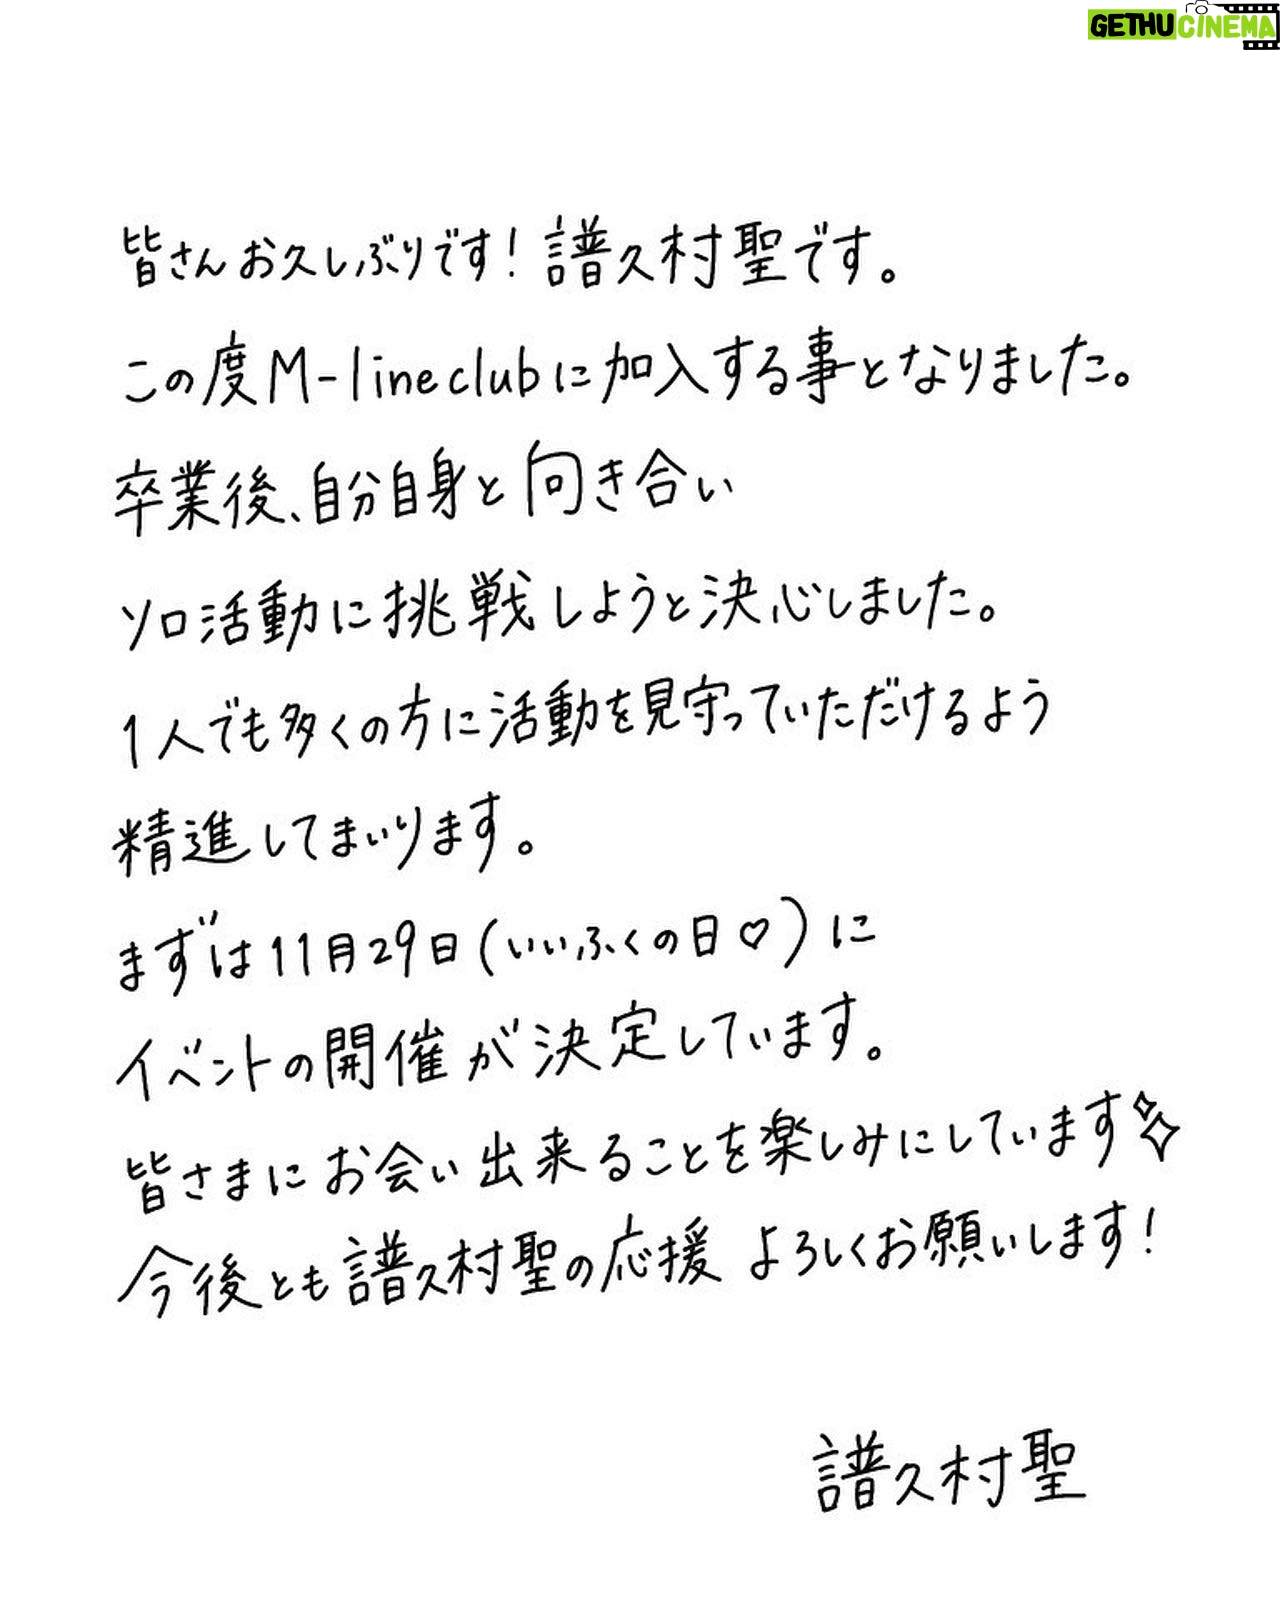 GETHUCINEMA
皆さんお久しぶりです！譜久村聖です。
この度M-line clubに加入する事となりました。
卒業後、自分自身と向き合い
ソロ活動に挑戦しようと決心しました。
1人でも多くの方に活動を見守っていただけるよう
精進してまいります。
まずは11月29日(いいふくの日♡)に
イベントの開催が決定しています。
皆さまにお会い出来ることを楽しみにしています✨
今後とも譜久村聖の応援 よろしくお願いします！
譜久村聖